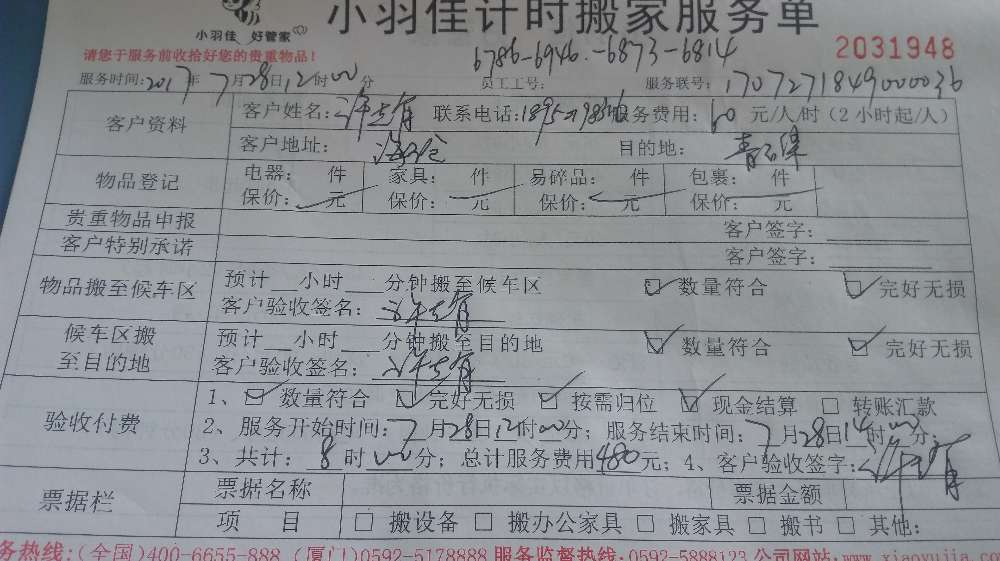 小羽佳计时搬家服务单
小羽佳 好管家
请您于服务前收拾好您的贵重物品！
6786-6946-6873-6814
2031948
服务时间：2017年7月28日12时00分 员工工号： 服务联号：1707271849000036
客户资料 客户姓名： 联系电话： 服务费用：60元/人/时（2小时起/人）
客户地址： 目的地：
物品登记 电器： 件 家具： 件 易碎品： 件 包裹： 件
保价： 元 保价： 元 保价： 元 保价： 元
贵重物品申报 客户签字：
客户特别承诺 客户签字：
物品搬至候车区 预计 小时 分钟搬至候车区 数量符合 完好无损
客户验收签名：
候车区搬至目的地 预计 小时 分钟搬至目的地 数量符合 完好无损
客户验收签名：
验收付费 1、 数量符合 完好无损 按需归位 现金结算 转账汇款
2、服务开始时间：7月28日12时00分；服务结束时间：7月28日14时00分；
3、共计：8时00分；总计服务费用480元；4、客户验收签字：
票据栏 票据名称 票据金额
项 目 搬设备 搬办公家具 搬家具 搬书 其他：
务热线：（全国）400-6655-888（厦门）0592-5178888 服务监督热线：0592-5888123 公司网站：www.xiaoyujia.com